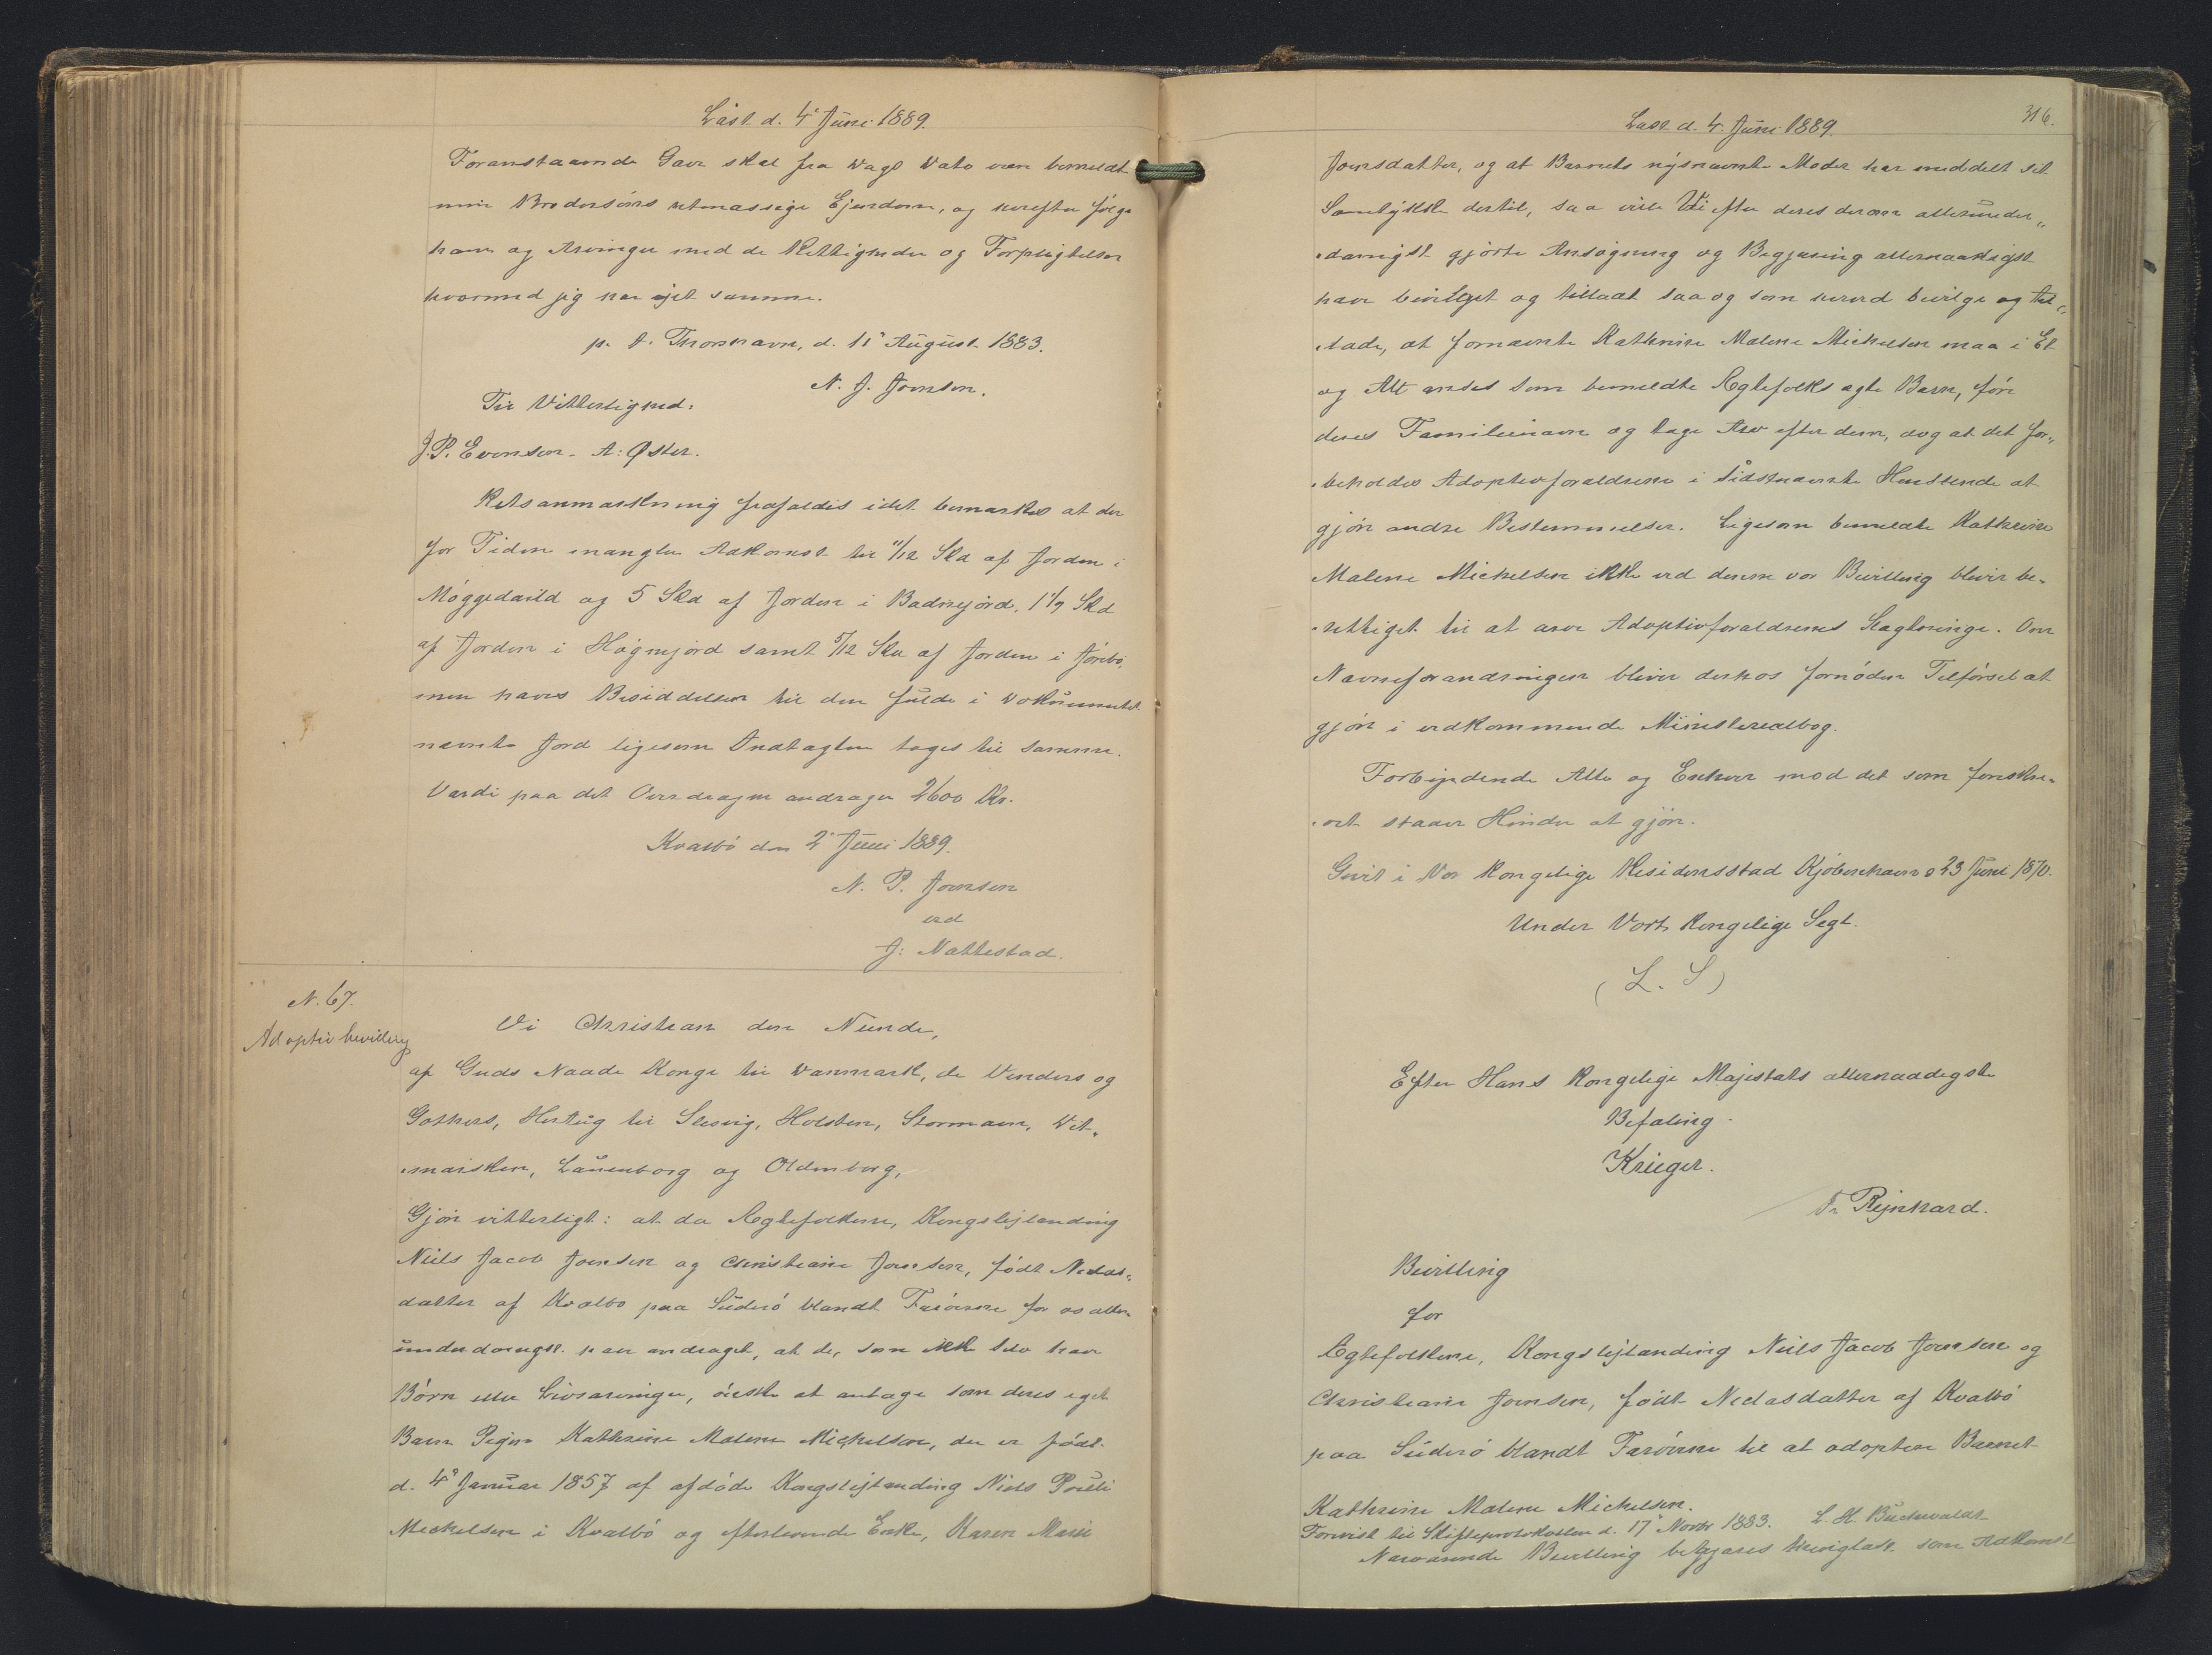 Läst d. 4' Juni 1889.
Foranstaaende Gave skal fra Dags Dato være bemeldt
min Brodersöns retmæssige Ejendom, og herefter følge
ham og Arvinger med de Rettigheder og Forpligtelser
hvormed jeg har ejet samme.
p. t. Thorshavn, d. 11' August 1883.
N. J. Joensen.
Til Vitterlighed:
J. P. Evensen. A: Øster.
Retsanmærkning frafaldes idet bemærkes at der
for Tiden mangler Adkomst til 11/12 Skd af Jorden i
og 5 Skd af Jorden i 1 1/9 Skd
af Jorden i samt 5/12 Skd af Jorden i
men haves Besiddelsen til den fulde i Dokumentet
nævnte Jord ligesom Indtægten tages til samme.
Værdi paa det Overdragne andrager 2600 Kr.
Kvalbö den 2' Juni 1889.
N. P. Joensen
ved
J: Nattestad.
N. 67.
Adoptiv bevilling
Vi Christian den Niende,
af Guds Naade Konge til Danmark, de Venders og
Gothers, Hertug til Slesvig, Holsten, Stormarn, Dit-
marsken, Lauenborg og Oldenborg,
Gjör vitterligt: at da Ægtefolkene, Kongslejlænding
Niels Jacob Joensen og Christiane Joensen, födt Neclas-
datter af Kvalbö paa Süderö blandt Færöerne for os aller-
underdanigst have andraget, at de, som ikke selv have
Börn eller Livsarvinger, önske at antage som deres eget
Barn Pigen Kathrine Malene Mickelsen, der er födt
d. 4' Januar 1857 af afdöde Kongslejlænding Niels Pouli
Mickelsen i Kvalbö og efterlevende Enke, Karen Marie
316.
Läst d. 4. Juni 1889.
Joensdatter, og at Barnets nysnævnte Moder har meddelt sit
Samtykke dertil, saa ville Vi efter deres derom allerunder-
danigst gjorte Ansögning og Begjæring allernaadigst
have bevilget og tilladt saa og som herved bevilge og til-
lade, at fornævnte Kathrine Malene Mickelsen maa i Et
og Alt anses som bemeldte Ægtefolks ægte Barn, före
deres Familienavn og tage Arv efter dem, dog at det for-
beholdes Adoptivforældrene i sidstnævnte Henseende at
gjöre andre Bestemmelser. Ligesom bemeldte Kathrine
Malene Mickelsen ikke ved denne vor Bevilling bliver be-
rettiget til at arve Adoptivforældrenes Slægtninge. Om
Navneforandringen bliver derhos fornöden Tilförsel at
gjöre i vedkommende Ministerialbog.
Forbydende Alle og Enhver mod det som foreskre-
vet staaer Hinder at gjöre.
Givet i Vor kongelige Residensstad Kjöbenhavn d 23 Juni 1870.
Under Vort kongelige Segl.
(L. S)
Efter Hans kongelige Majestæts allernaadigste
Befaling.
Krieger.
Fr Rejnhard.
Bevilling
for
Ægtefolkene, Kongslejlænding Niels Jacob Joensen og
Christiane Joensen, födt Neclasdatter af Kvalbö
paa Süderö blandt Færöerne til at adoptere Barnet
Kathrine Malene Mickelsen.
Forevist til Skifteprotokollen d. 17' Novbr 1883. L. H. Buchwaldt
Nærværende Bevilling begjæres thinglæst som Adkomst